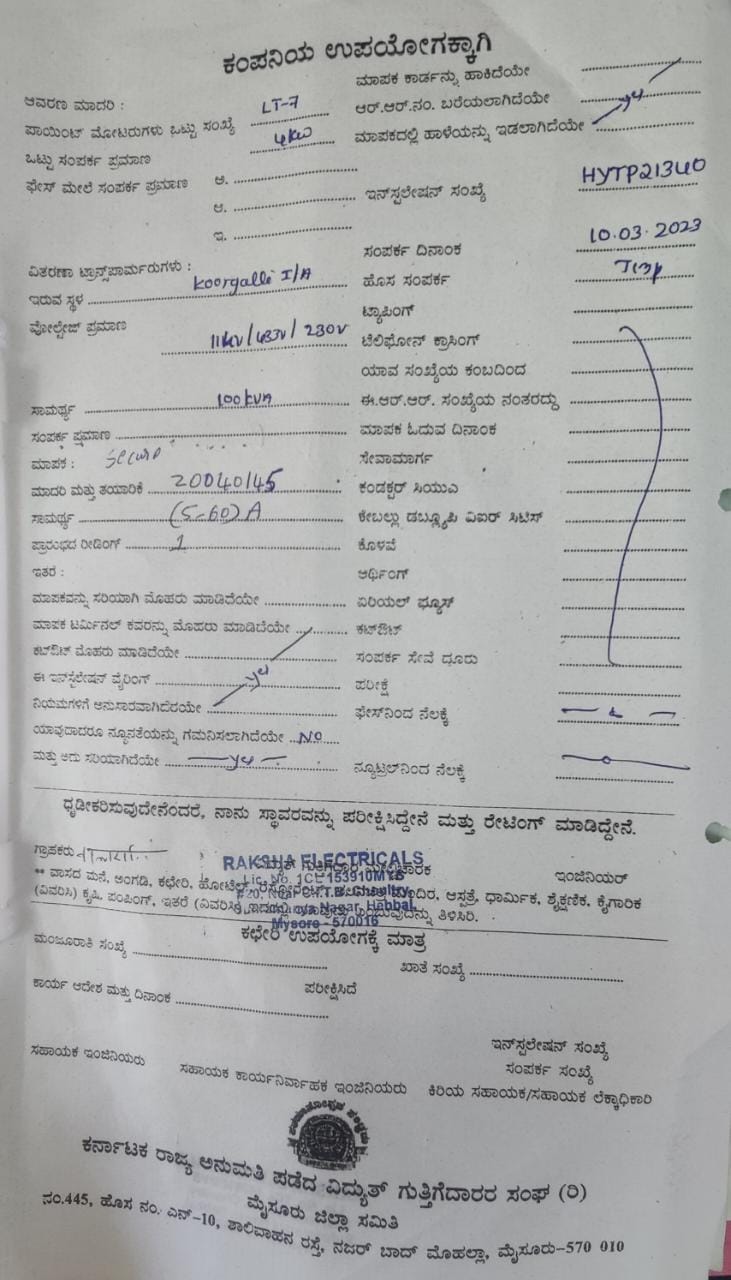 ಕಂಪನಿಯ ಉಪಯೋಗಕ್ಕಾಗಿ
ಆವರಣ ಮಾದರಿ : LT-7
ಪಾಯಿಂಟ್ ಮೋಟರುಗಳು ಒಟ್ಟು ಸಂಖ್ಯೆ
ಒಟ್ಟು ಸಂಪರ್ಕ ಪ್ರಮಾಣ 4kw
ಫೇಸ್ ಮೇಲೆ ಸಂಪರ್ಕ ಪ್ರಮಾಣ ಅ.
ಆ.
ಇ.
ವಿತರಣಾ ಟ್ರಾನ್ಸ್‌ಪಾರ್ಮರುಗಳು :
ಇರುವ ಸ್ಥಳ Koorgalli I/A
ವೋಲ್ಟೇಜ್ ಪ್ರಮಾಣ 11kv/433v/230v
ಸಾಮರ್ಥ್ಯ 100kva
ಸಂಪರ್ಕ ಪ್ರಮಾಣ
ಮಾಪಕ : Secure
ಮಾದರಿ ಮತ್ತು ತಯಾರಿಕೆ 20040145
ಸಾಮರ್ಥ್ಯ (5-60)A
ಪ್ರಾರಂಭದ ರೀಡಿಂಗ್ 1
ಇತರೆ :
ಮಾಪಕವನ್ನು ಸರಿಯಾಗಿ ಮೊಹರು ಮಾಡಿದೆಯೇ
ಮಾಪಕ ಟರ್ಮಿನಲ್ ಕವರನ್ನು ಮೊಹರು ಮಾಡಿದೆಯೇ
ಕಟ್‌ಔಟ್ ಮೊಹರು ಮಾಡಿದೆಯೇ
ಈ ಇನ್‌ಸ್ಟಲೇಷನ್ ವೈರಿಂಗ್ yes
ನಿಯಮಗಳಿಗೆ ಅನುಸಾರವಾಗಿದೆರಯೇ
ಯಾವುದಾದರೂ ನ್ಯೂನತೆಯನ್ನು ಗಮನಿಸಲಾಗಿದೆಯೇ No
ಮತ್ತು ಅದು ಸರಿಯಾಗಿದೆಯೇ yes
ಮಾಪಕ ಕಾರ್ಡನ್ನು ಹಾಕಿದೆಯೇ
ಆರ್.ಆರ್.ನಂ. ಬರೆಯಲಾಗಿದೆಯೇ yes
ಮಾಪಕದಲ್ಲಿ ಹಾಳೆಯನ್ನು ಇಡಲಾಗಿದೆಯೇ
ಇನ್‌ಸ್ಟಲೇಷನ್ ಸಂಖ್ಯೆ HYTP21340
ಸಂಪರ್ಕ ದಿನಾಂಕ 10.03.2023
ಹೊಸ ಸಂಪರ್ಕ
ಟ್ಯಾಪಿಂಗ್
ಟೆಲಿಫೋನ್ ಕ್ರಾಸಿಂಗ್
ಯಾವ ಸಂಖ್ಯೆಯ ಕಂಬದಿಂದ
ಈ.ಆರ್.ಆರ್. ಸಂಖ್ಯೆಯ ನಂತರದ್ದು
ಮಾಪಕ ಓದುವ ದಿನಾಂಕ
ಸೇವಾಮಾರ್ಗ
ಕಂಡಕ್ಟರ್ ಸಿಯುಎ
ಕೇಬಲ್ಲು ಡಬ್ಲ್ಯೂಪಿ ವಿಐರ್ ಸಿಟಿಸ್
ಕೊಳವೆ
ಅರ್ಥಿಂಗ್
ಏರಿಯಲ್ ಫ್ಯೂಸ್
ಕಟ್‌ಔಟ್
ಸಂಪರ್ಕ ಸೇವೆ ದೂರು
ಪರೀಕ್ಷೆ
ಫೇಸ್‌ನಿಂದ ನೆಲಕ್ಕೆ
ನ್ಯೂಟ್ರಲ್‌ನಿಂದ ನೆಲಕ್ಕೆ
ಧೃಡೀಕರಿಸುವುದೇನೆಂದರೆ, ನಾನು ಸ್ಥಾವರವನ್ನು ಪರೀಕ್ಷಿಸಿದ್ದೇನೆ ಮತ್ತು ರೇಟಿಂಗ್ ಮಾಡಿದ್ದೇನೆ.
ಗ್ರಾಹಕರು
ಇಂಜಿನಿಯರ್
RAKSHA ELECTRICALS
Lic. No. 1CL-153910MYS
Hebbal,
Mysore - 570016
** ವಾಸದ ಮನೆ, ಅಂಗಡಿ, ಕಛೇರಿ, ಹೋಟೆಲ್, ಮಂದಿರ, ಆಸ್ಪತ್ರೆ, ಧಾರ್ಮಿಕ, ಶೈಕ್ಷಣಿಕ, ಕೈಗಾರಿಕ
(ವಿವರಿಸಿ) ಕೃಷಿ, ಪಂಪಿಂಗ್, ಇತರೆ (ವಿವರಿಸಿ) ತಿಳಿಸಿರಿ.
ಕಛೇರಿ ಉಪಯೋಗಕ್ಕೆ ಮಾತ್ರ
ಮಂಜೂರಾತಿ ಸಂಖ್ಯೆ
ಖಾತೆ ಸಂಖ್ಯೆ
ಕಾರ್ಯ ಆದೇಶ ಮತ್ತು ದಿನಾಂಕ
ಪರೀಕ್ಷಿಸಿದೆ
ಇನ್‌ಸ್ಟಲೇಷನ್ ಸಂಖ್ಯೆ
ಸಂಪರ್ಕ ಸಂಖ್ಯೆ
ಸಹಾಯಕ ಇಂಜಿನಿಯರು ಸಹಾಯಕ ಕಾರ್ಯನಿರ್ವಾಹಕ ಇಂಜಿನಿಯರು ಕಿರಿಯ ಸಹಾಯಕ/ಸಹಾಯಕ ಲೆಕ್ಕಾಧಿಕಾರಿ
ಕರ್ನಾಟಕ ರಾಜ್ಯ ಅನುಮತಿ ಪಡೆದ ವಿದ್ಯುತ್ ಗುತ್ತಿಗೆದಾರರ ಸಂಘ (ರಿ)
ಮೈಸೂರು ಜಿಲ್ಲಾ ಸಮಿತಿ
ನಂ.445, ಹೊಸ ನಂ. ಎನ್-10, ಶಾಲಿವಾಹನ ರಸ್ತೆ, ನಜರ್ ಬಾದ್ ಮೊಹಲ್ಲಾ, ಮೈಸೂರು-570 010